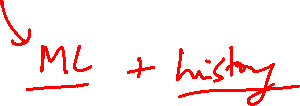 ML + history